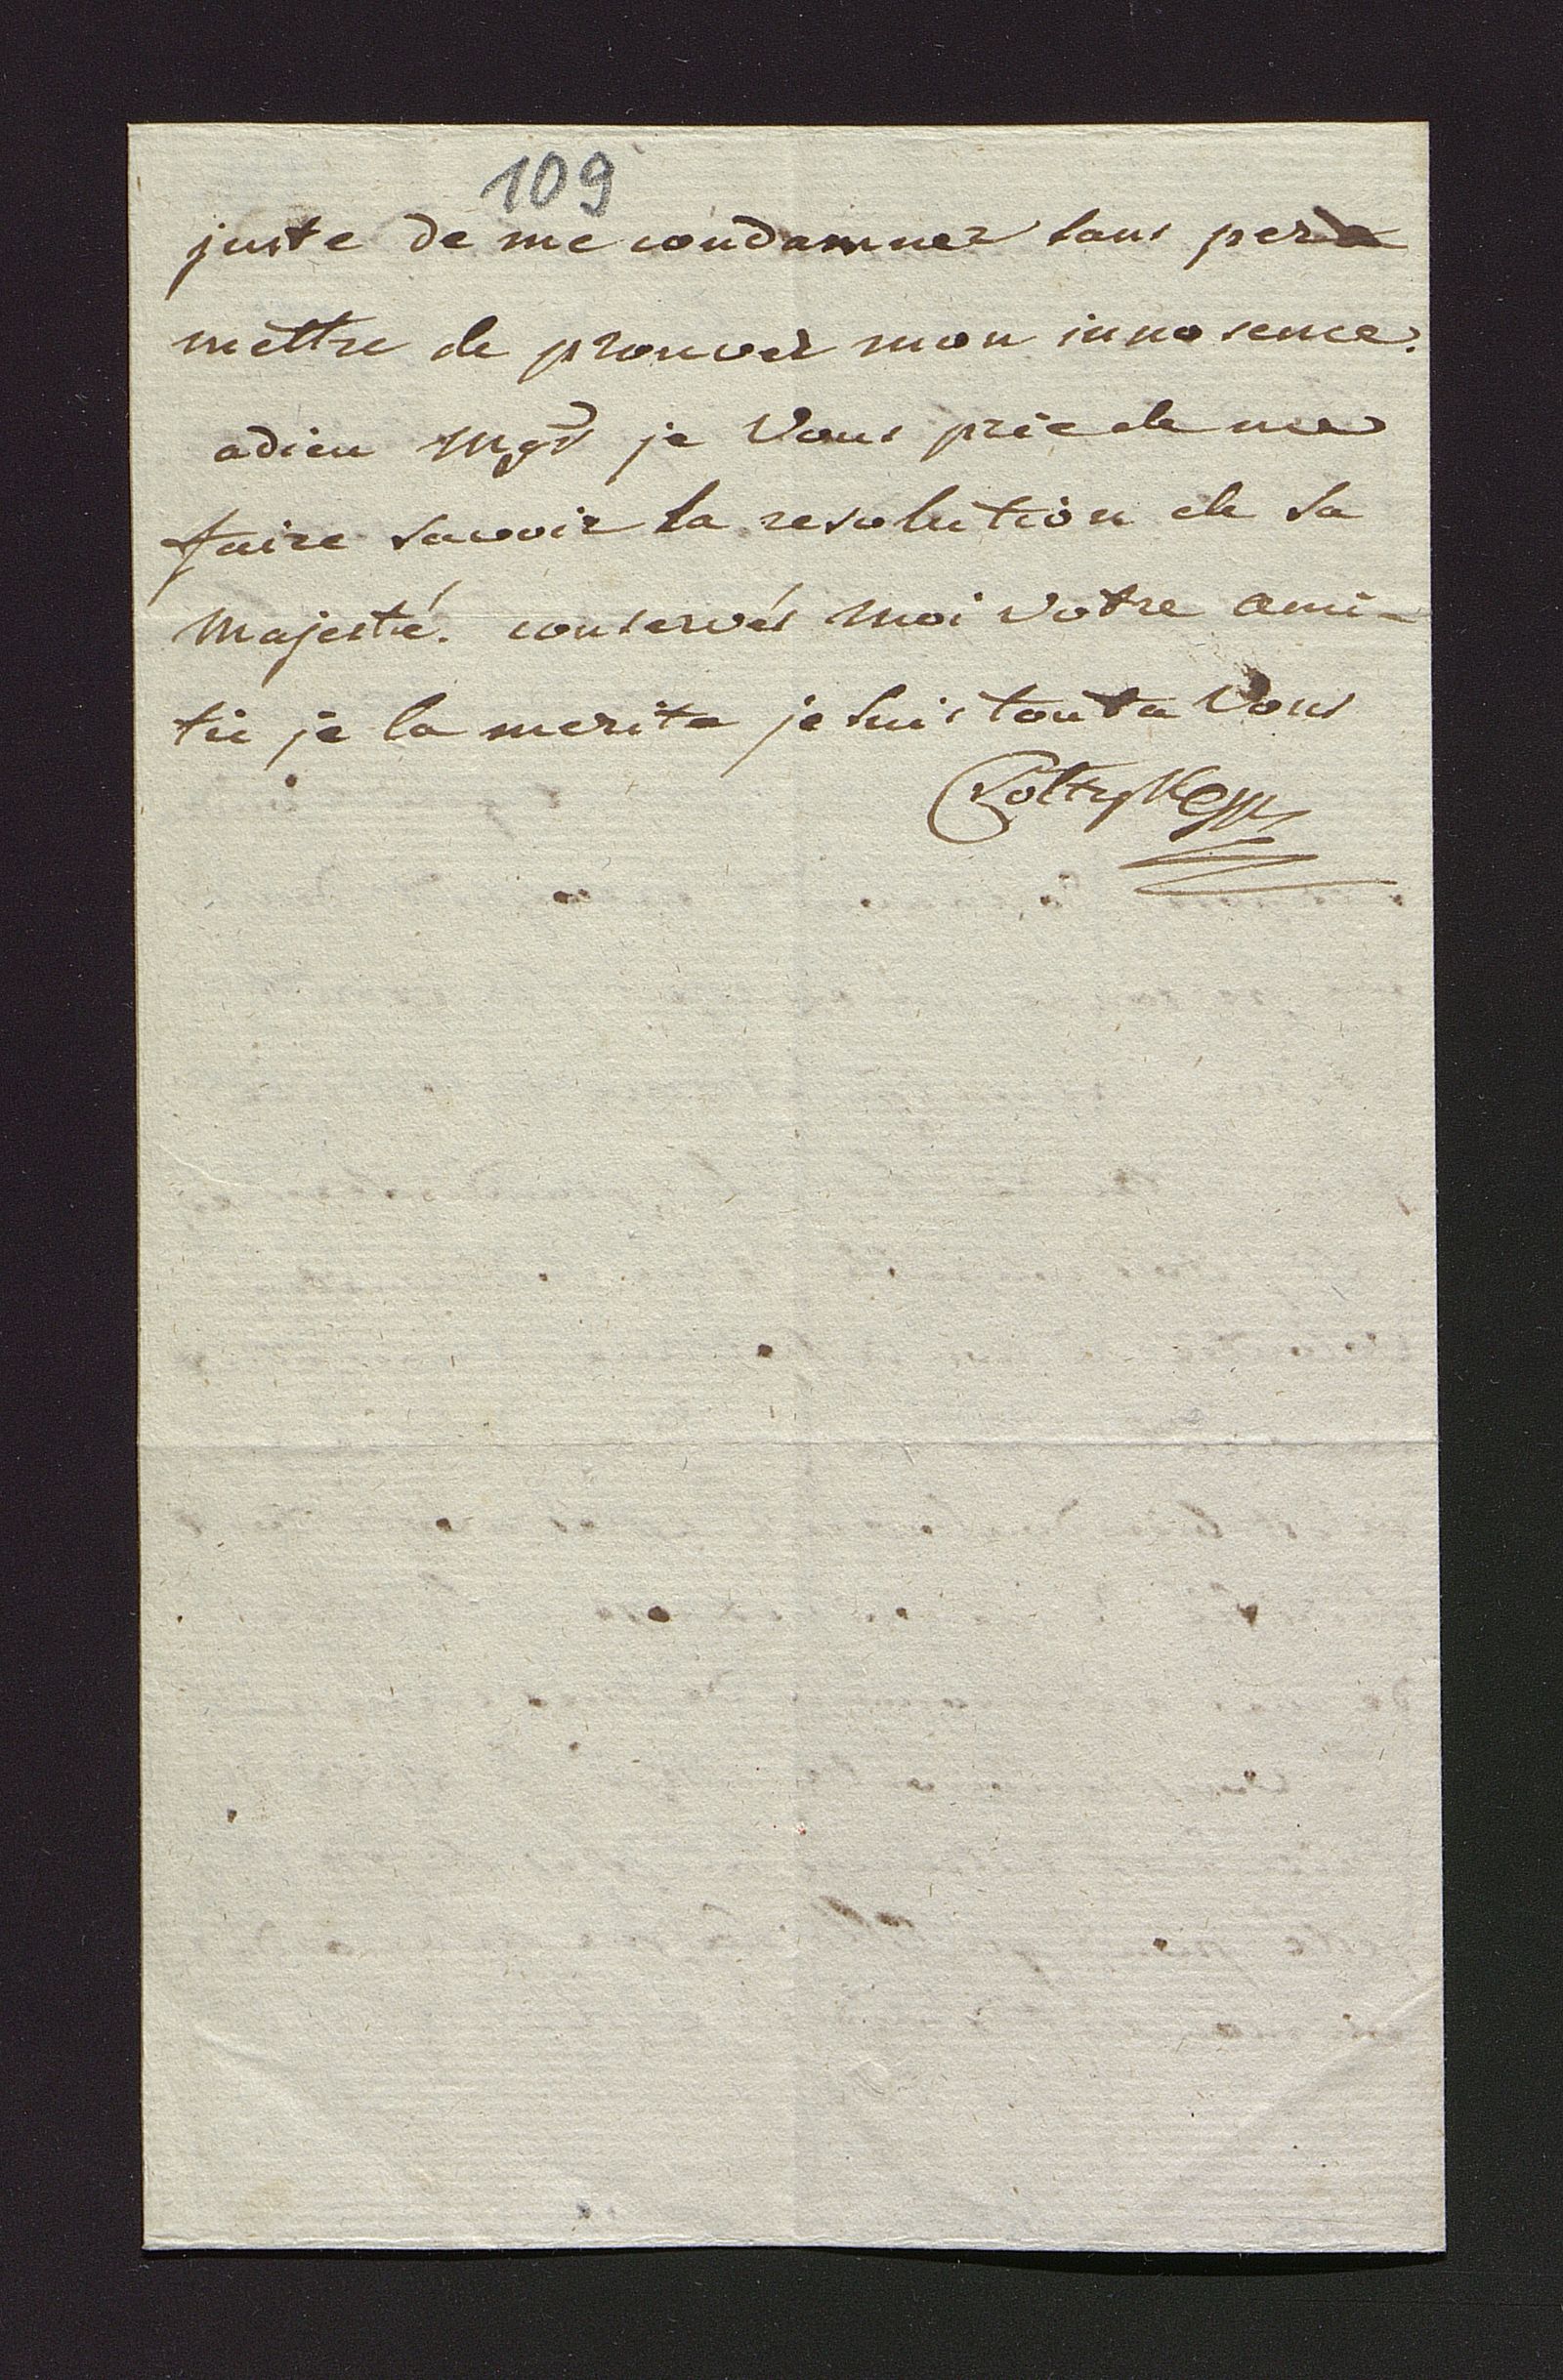 109
juste de me condamner sans per
mettre de prouver mon innosence.
adieu Mgr je Vous prie de me
faire savoir la resolution de Sa
Majesté. conservés moi votre ami-
tié je la merite je suis tout a Vous